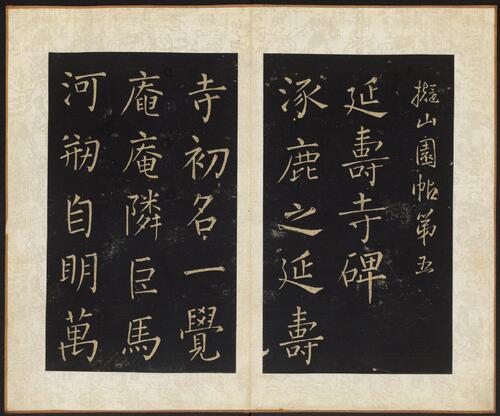 擬山園帖第五
延壽寺碑
涿鹿之延壽
寺初名一覺
庵庵隣巨馬
河剏自明萬